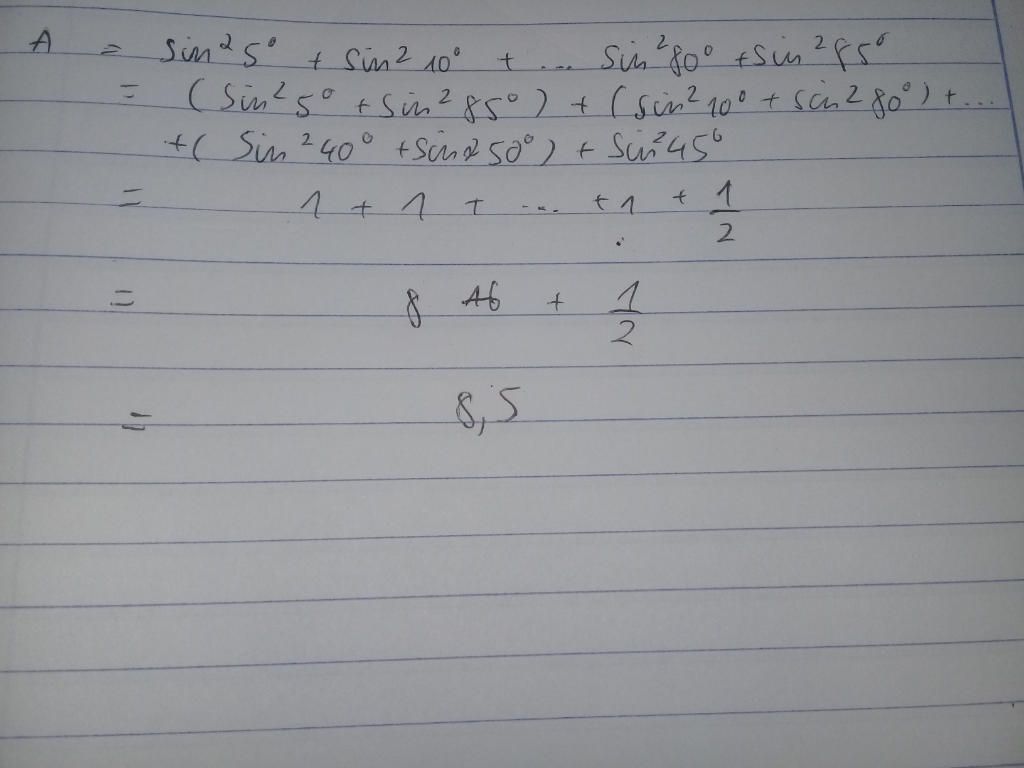 A = sin²5° + sin²10° + ... sin²80° + sin²85°
= (sin²5° + sin²85°) + (sin²10° + sin²80°) + ...
+ (sin²40° + sin²50°) + sin²45°
= 1 + 1 + ... + 1 + 1/2
= 8 + 1/2
= 8,5